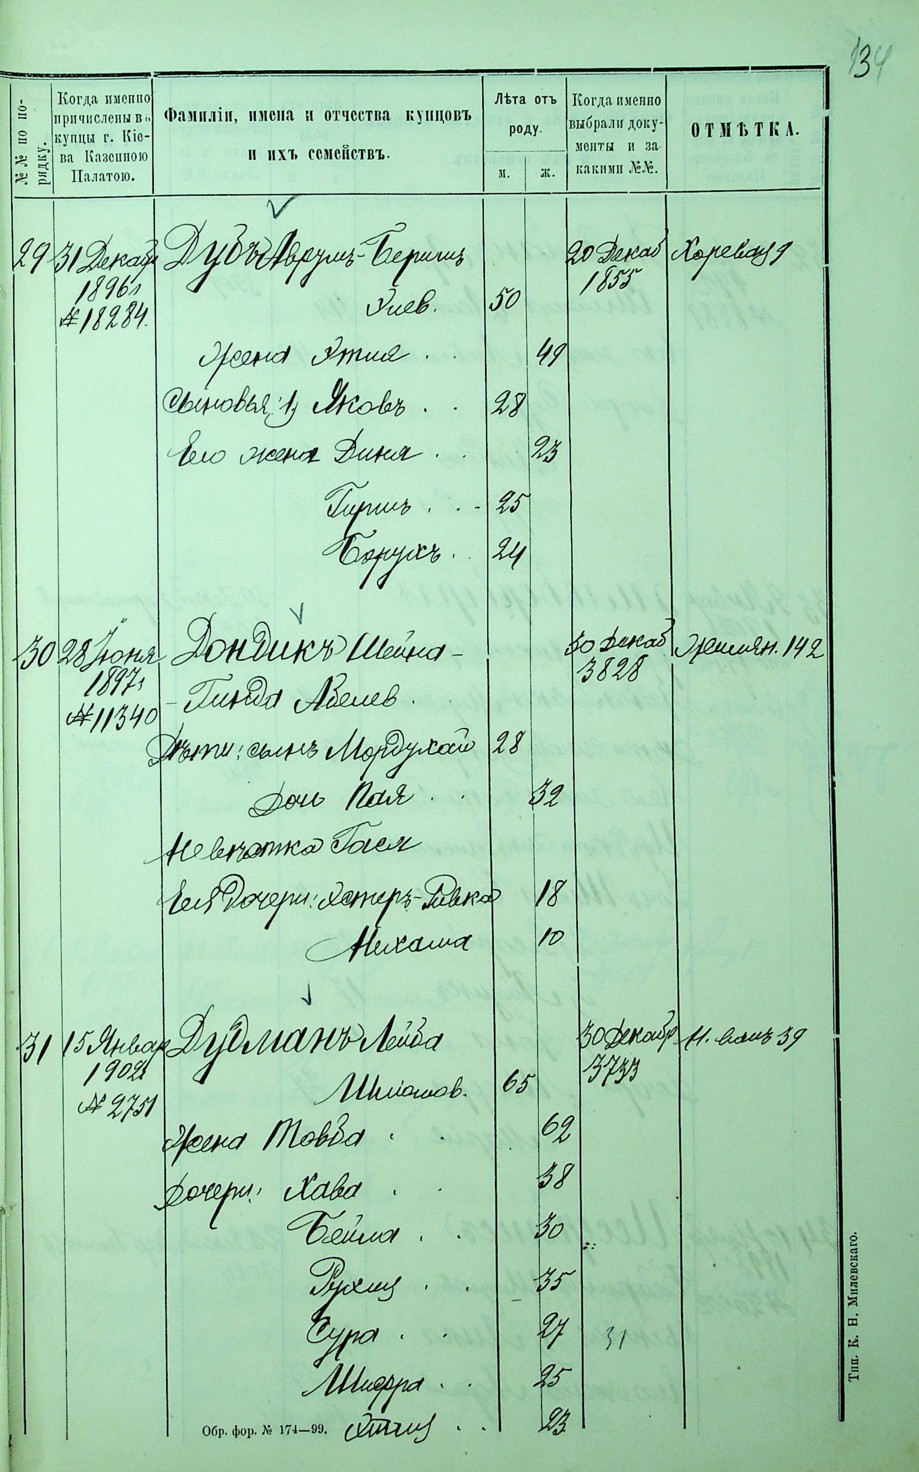 134
№№ по по-
рядку.
Когда именно
причислены въ
купцы г. Кіе-
ва Казенною
Палатою.
Фамиліи, имена и отчества купцовъ
и ихъ семействъ.
Лѣта отъ
роду.
м. ж.
Когда именно
выбрали доку-
менты и за
какими №№.
ОТМѢТКА.
29 31 Декаб Дубъ Аврумъ-Беришъ 20 Декаб Хоревая 9
1896 г 1855
№ 18284. 50
Жена Этия . . 49
Сыновья: 1) Яковъ . . 28
Его жена Диня . . 23
Гиршъ . . 25
Борухъ . . 24
30 28 Іюня Дондикъ Шейна- 30 Декаб Жилян. 142
1897 г 3828
№ 11340 -Гинда Абелев.
Дѣти: сынъ Мордухай 28
Дочь Пая . 32
Невѣстка Гася
Ея Дочери: Эстеръ-Ривка 18
Нехама 10
31 15 Январ Дудманъ Лейба 30 Декабр Н. валъ 39
1902 г 3733
№ 2751 Шліомов. 65
Жена Товба . . 62
Дочери: Хава . . 38
Бейла . . 30
Рухля . . 35
Сура . . 27 31
Шифра . . 25
Этля . . 23
Обр. фор. № 174—99.
Тип. К. Н. Милевскаго.